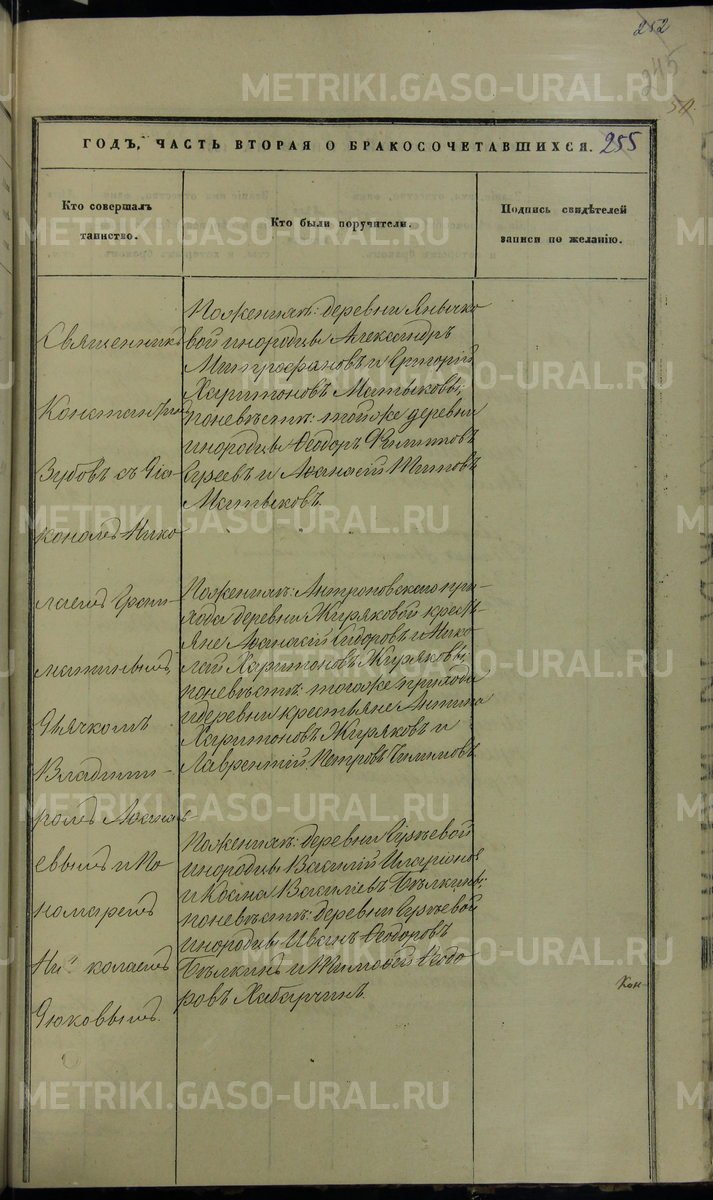 252
245
54.
255
ГОДЪ, ЧАСТЬ ВТОРАЯ О БРАКОСОЧЕТАВШИХСЯ.
Кто совершалъ
таинство.
Кто были поручители.
Подпись свидѣтелей
записи по желанію.
Священникъ
Константинъ
Зубовъ съ Діа-
кономъ Нико
лаемъ
Дьячкомъ
Владими-
ромъ
евымъ и По
номаремъ
Николаемъ
Дюковымъ.
По женихѣ: деревни Янычко
вой инородцы Александръ
Митрофановъ и Григорій
Харитоновъ Матыковы;
по невѣстѣ: той же деревни
инородцы Ѳеодоръ
и Аѳанасій Титовъ
Матыковъ.
По женихѣ: Антроповскаго при-
хода деревни Жиряковой кресть
яне Аѳанасій Сидоровъ и Нико
лай Харитоновъ Жиряковы,
по невѣстѣ: того же прихода
и деревни крестьяне Антипа
Харитоновъ Жиряковъ и
Лаврентій Петровъ
По женихѣ: деревни
инородцы Василій Иларіоновъ
и Косма Васильевъ Бѣлкины;
по невѣстѣ: деревни
инородцы Иванъ Ѳеодоровъ
Бѣлкинъ и Тимоѳей Ѳеодо
ровъ Хабарчинъ.
Кон-
METRIKI.GASO-URAL.RU